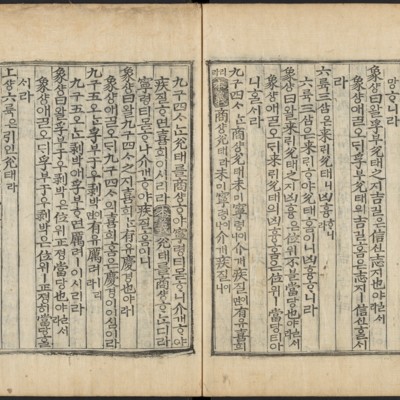 망ᄒᆞ니라
象샹曰왈孚부兌태之지吉길은信신志지也야ㅣ라
象샹애ᄀᆞᆯ오ᄃᆡ孚부兌태의吉길홈은志지ㅣ信신ᄒᆞᆯ셔
라
六륙三삼은來ᄅᆡ兌태니凶흉ᄒᆞ니라
六륙三삼은來ᄅᆡᄒᆞ야兌태홈이니凶흉ᄒᆞ니라
象샹曰왈來ᄅᆡ兌태之지凶흉은位위不블當당也야ᄅᆞᆯ셔
象샹애ᄀᆞᆯ오ᄃᆡ來ᄅᆡ兌태의凶흉홈은位위ㅣ當당티아
니ᄒᆞᆯ셔라
九구四ᄉᆞᄂᆞᆫ商샹兌태未미寧령이니介개疾질이면有유喜희
리라 商샹兌태라未미寧령ᄒᆞ나介개疾질이니
九구四ᄉᆞᄂᆞᆫ兌태를商샹ᄒᆞ야寧령티몯ᄒᆞ니介개ᄒᆞ야
疾질ᄒᆞ면喜희이시리라 兌태를商샹ᄒᆞᄂᆞᆫ디라
寧령티몯ᄒᆞ나介개ᄒᆞ야疾질홈이니
象샹曰왈九구四ᄉᆞ之지喜희ᄂᆞᆫ有유慶경也야ㅣ라
象샹애ᄀᆞᆯ오ᄃᆡ九구四ᄉᆞ의喜희홈은慶경이이실이라
九구五오ᄂᆞᆫ孚부于우剝박이면有유厲려ㅣ리라
九구五오ᄂᆞᆫ剝박애孚부ᄒᆞ면厲려ㅣ이시리라
象샹曰왈孚부于우剝박은位위正졍當당也야ᄅᆞᆯ셔
象샹애ᄀᆞᆯ오ᄃᆡ孚부于우剝박은位위ㅣ正졍히當당ᄒᆞᆯ
셔라
上샹六륙은引인兌태라